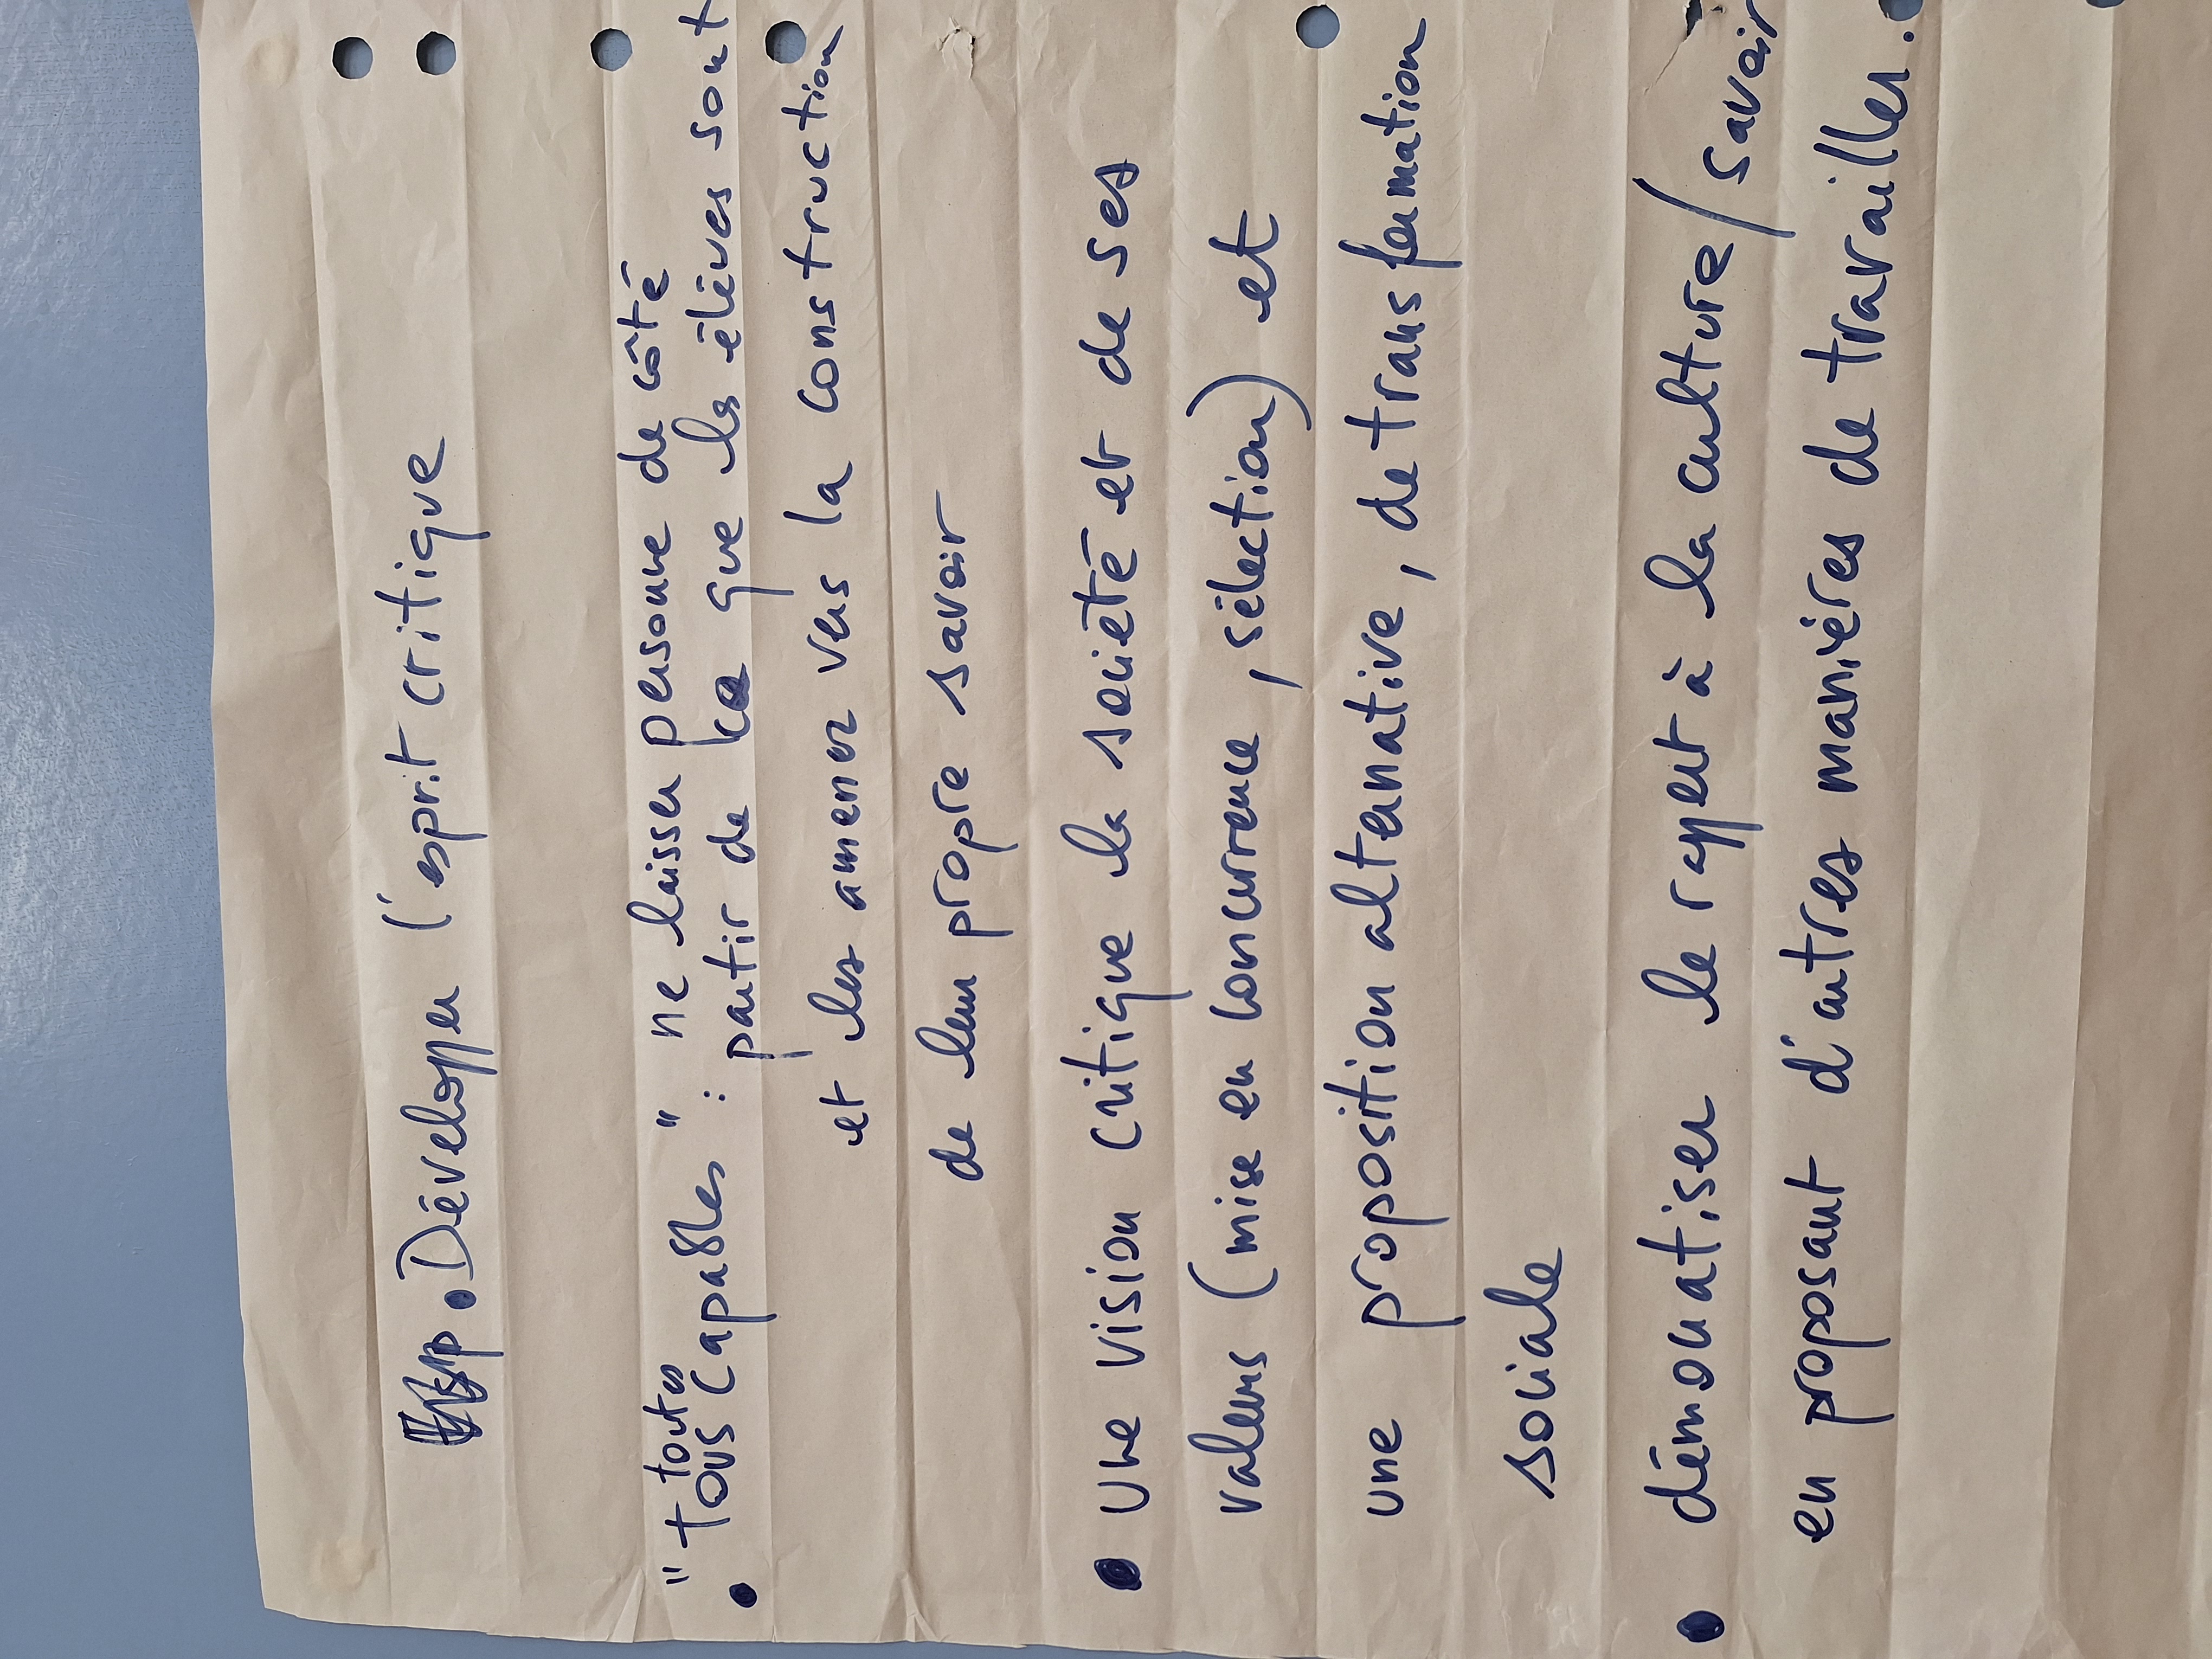 • Développer l'esprit critique
toutes ne laisser personne de côté
• "tous capables" : partir de ce que les élèves sont
et les amener vers la construction
de leur propre savoir
• Une vision critique de la société et de ses
valeurs (mise en concurrence, sélection) et
une proposition alternative, de transformation
sociale
• démocratiser le rapport à la culture/savoir
en proposant d'autres manières de travailler.